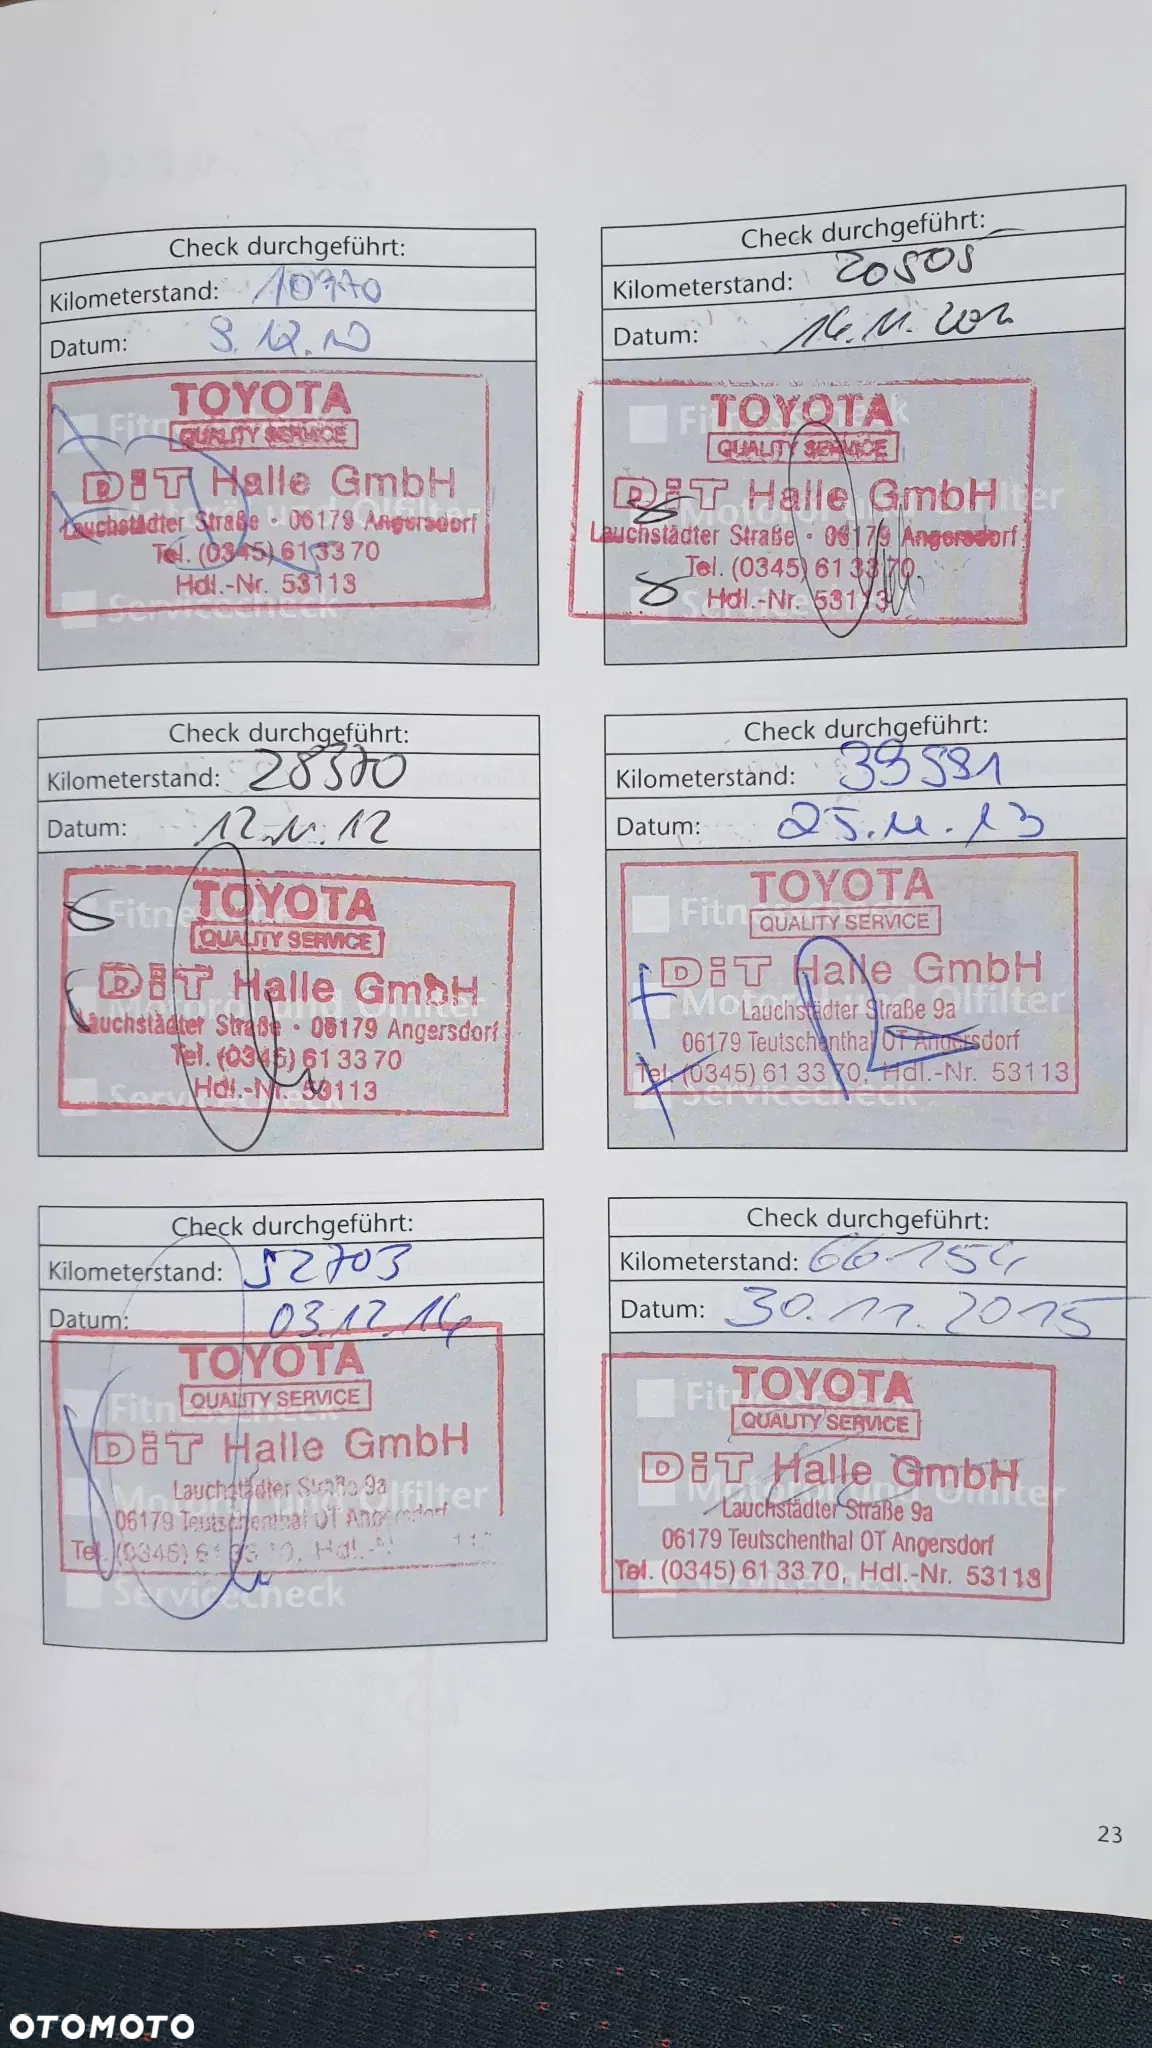 Check durchgeführt:
Kilometerstand: 10370
Datum: 9.12.10
TOYOTA
QUALITY SERVICE
DiT Halle GmbH
Lauchstädter Straße · 06179 Angersdorf
Tel. (0345) 61 33 70
Hdl.-Nr. 53113
Fitnesscheck
Motoröl und Ölfilter
Servicecheck
Check durchgeführt:
Kilometerstand: 20505
Datum: 14.11.
TOYOTA
QUALITY SERVICE
DiT Halle GmbH
Lauchstädter Straße · 06179 Angersdorf
Tel. (0345) 61 33 70
Hdl.-Nr. 53113
Fitnesscheck
Motoröl und Ölfilter
Servicecheck
Check durchgeführt:
Kilometerstand: 28370
Datum: 12.11.12
TOYOTA
QUALITY SERVICE
DiT Halle GmbH
Lauchstädter Straße · 06179 Angersdorf
Tel. (0345) 61 33 70
Hdl.-Nr. 53113
Fitnesscheck
Motoröl und Ölfilter
Servicecheck
Check durchgeführt:
Kilometerstand: 39591
Datum: 25.11.13
TOYOTA
QUALITY SERVICE
DiT Halle GmbH
Lauchstädter Straße 9a
06179 Teutschenthal OT Angersdorf
Tel. (0345) 61 33 70, Hdl.-Nr. 53113
Fitnesscheck
Motoröl und Ölfilter
Servicecheck
Check durchgeführt:
Kilometerstand: 52703
Datum: 03.12.14
TOYOTA
QUALITY SERVICE
DiT Halle GmbH
Lauchstädter Straße 9a
06179 Teutschenthal OT Angersdorf
Tel. (0345) 61 33 70, Hdl.-N
Fitnesscheck
Motoröl und Ölfilter
Servicecheck
Check durchgeführt:
Kilometerstand: 66.154
Datum: 30.11.2015
TOYOTA
QUALITY SERVICE
DiT Halle GmbH
Lauchstädter Straße 9a
06179 Teutschenthal OT Angersdorf
Tel. (0345) 61 33 70, Hdl.-Nr. 53113
Fitnesscheck
Motoröl und Ölfilter
Servicecheck
23
OTOMOTO